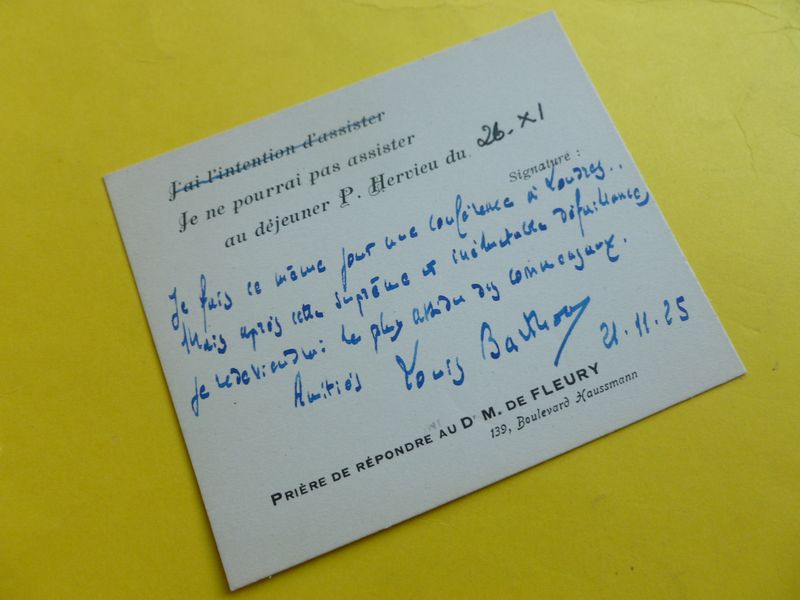 J'ai l'intention d'assister
Je ne pourrai pas assister
au déjeuner P. Hervieu du 26-XI
Signature :
Je fais ce même jour une conférence à Londres..
Mais après cette suprême et inéluctable défaillance
je redeviendrai le plus assidu des commensaux.
Amitiés Louis Barthou 21.11.25
PRIÈRE DE RÉPONDRE AU Dr M. DE FLEURY
139, Boulevard Haussmann